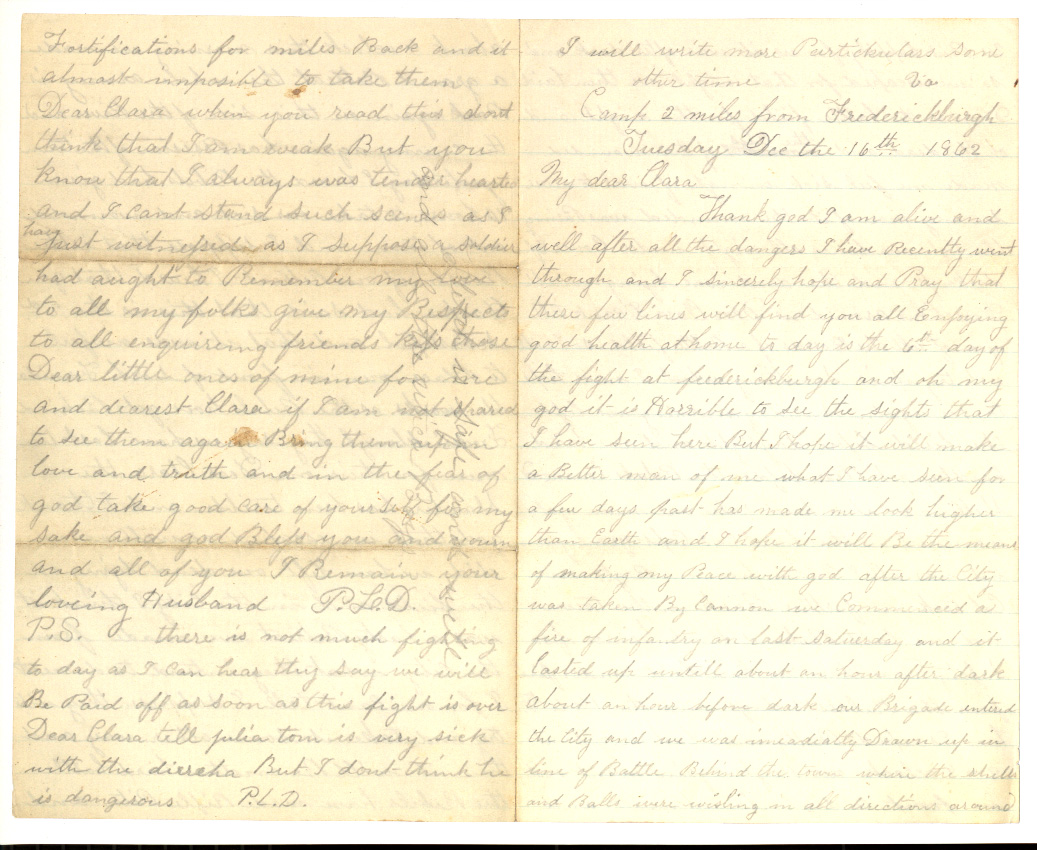 I will write more Partickulars some
other time Va
Camp 2 miles from Frederickburgh
Tuesday Dec the 16th 1862
My dear Clara
Thank god I am alive and
well after all the dangers I have Recently went
through and I sincerely hope and Pray that
these few lines will find you all Enjoying
good health at home to day is the 6th day of
the fight at frederickburgh and oh my
god it is Horrible to see the sights that
I have seen here But I hope it will make
a Better man of me what I have seen for
a few days past has made me look higher
than Earth and I hope it will Be the means
of making my Peace with god after the City
was taken By Cannon we Commenced a
fire of infantry on last saturday and it
Easted up untill about an hour after dark
About an hour before dark our Brigade entered
the City and we was imeadiatly Drawn up in
line of Battle Behind the town where the shells
and Balls were wishing in all directions around
Fortifications for miles Back and it
almost imposible to take them
Dear Clara when you read this dont
think that I am weak But you
know that I always was tender hearted
and I cant stand such scenes as I
have just witnessed as I suppose a soldier
had aught to Remember my love
to all my folks give my Respects
to all enquireing friends kiss those
Dear little ones of mine for me
and dearest Clara if I am not spared
to see them again Bring them up in
love and truth and in the fear of
god take good care of yourself for my
sake and god Bless you and
and all of you I Remain your
loveing Husband P.L.D.
P.S. there is not much fighting
to day as I can hear they say we will
Be Paid off as soon as this fight is over
Dear Clara tell julia tom is very sick
with the dierreha But I dont think he
is dangerous P.L.D.